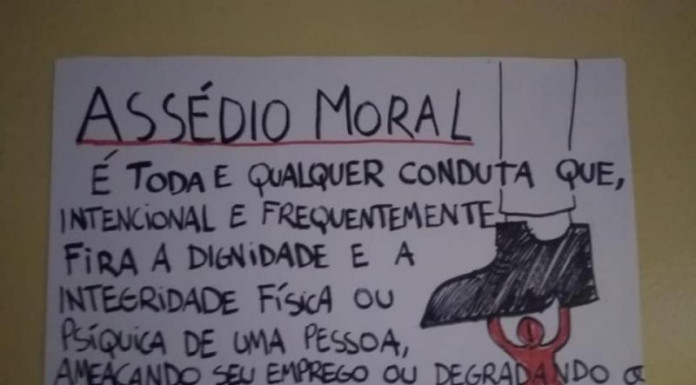 ASSÉDIO MORAL
É TODA E QUALQUER CONDUTA QUE,
INTENCIONAL E FREQUENTEMENTE
FIRA A DIGNIDADE E A
INTEGRIDADE FÍSICA OU
PSÍQUICA DE UMA PESSOA,
AMEAÇANDO SEU EMPREGO OU DEGRADANDO O